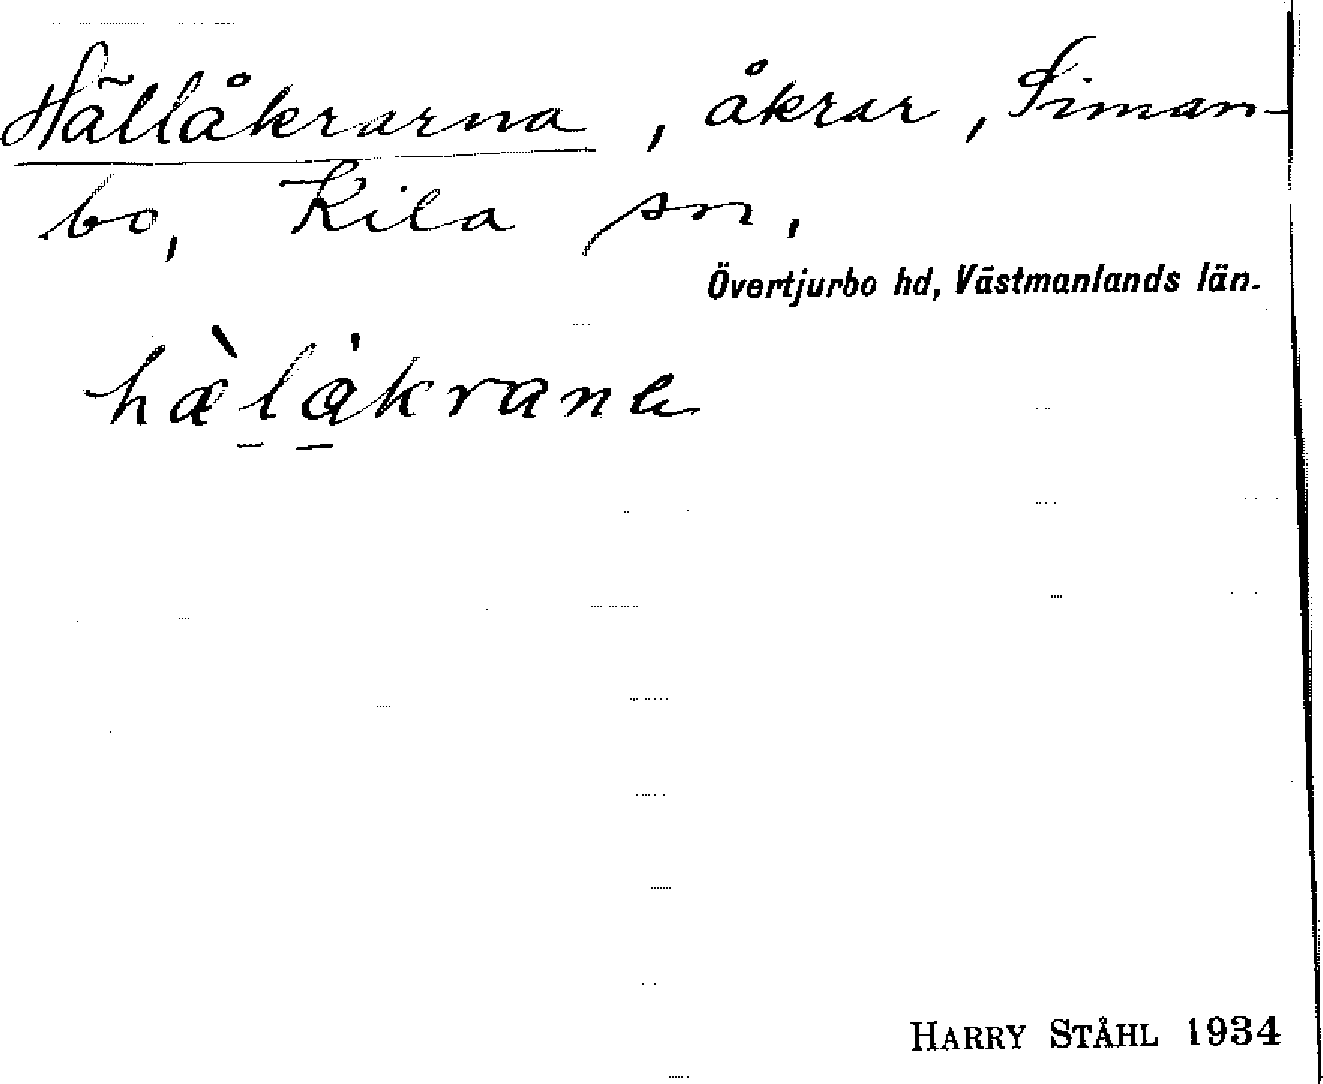 Hällåkrarna, åkrar, Siman-
bo, Kila sn,
Övertjurbo hd, Västmanlands län.
hæ̀l̠å̠̀krana
HARRY STÅHL 1934